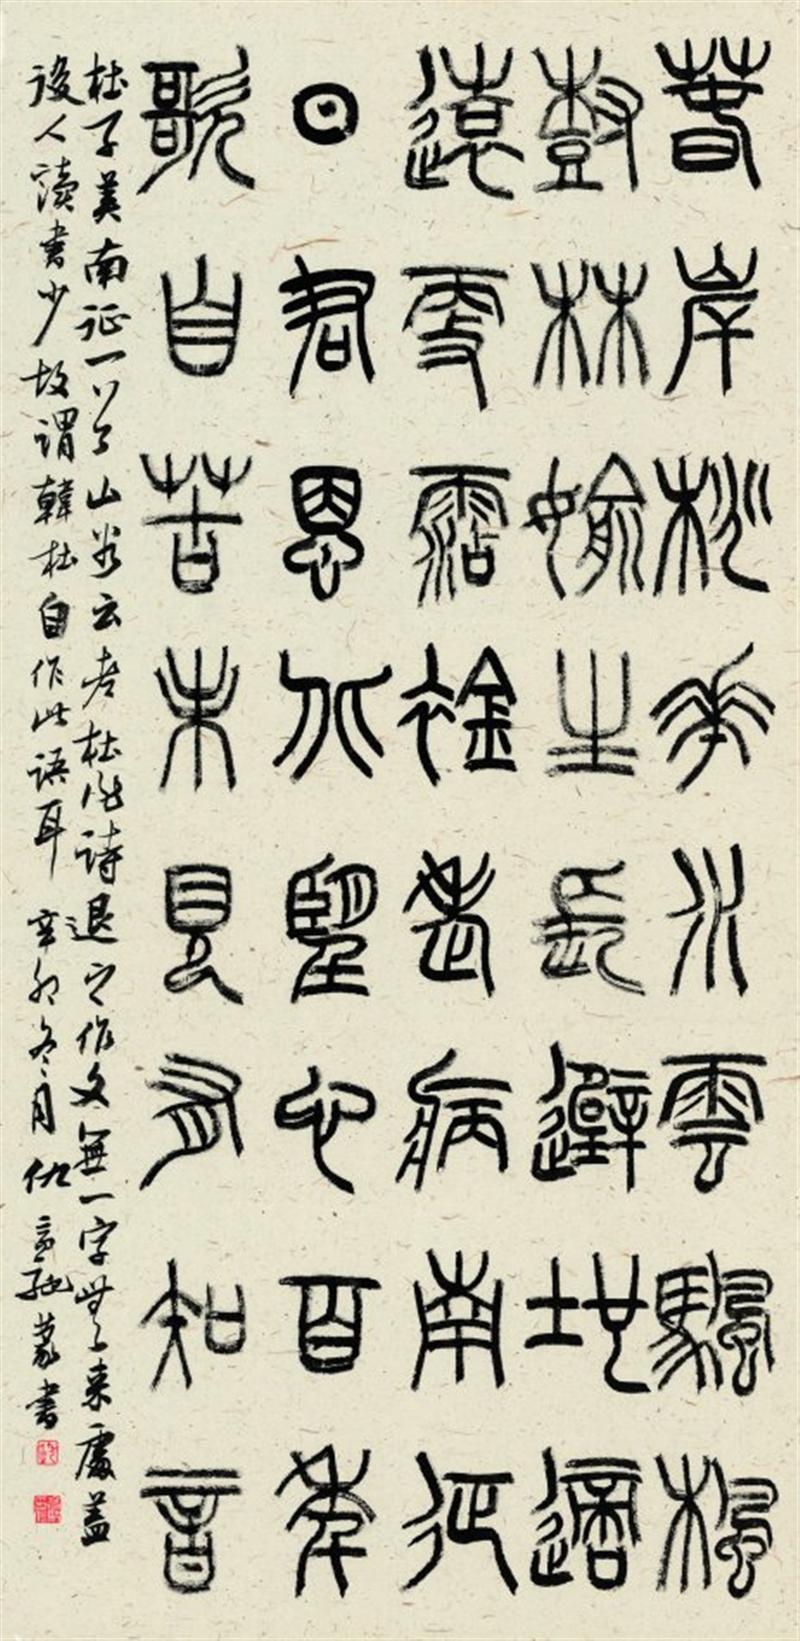 春岸桃花水雲颿楓
樹林媮生長避地適
遠更霑襟老病南征
日君恩北望心百年
歌自苦未見有知音
杜子美南征一首山谷云老杜作詩退之作文無一字無來處蓋
後人讀書少故謂韓杜自作此語耳 辛卯冬月仇高馳篆書